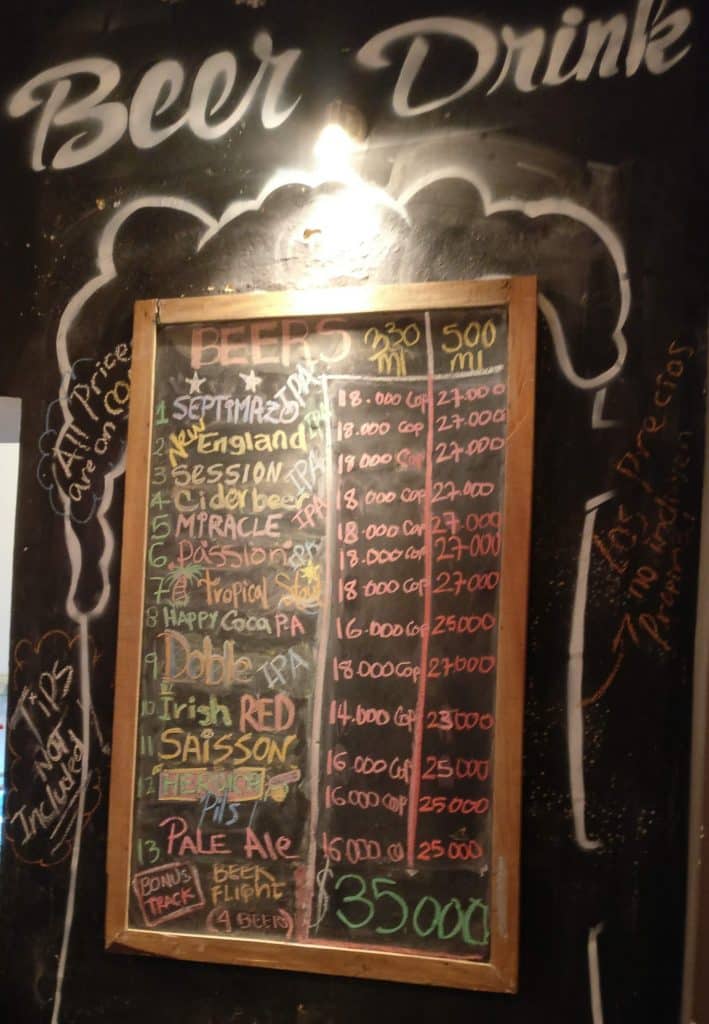 Beer Drink
BEERS 330 ml 500 ml
1 SEPTIMAZO IPA 18.000 Cop 27.000
2 New England IPA 18.000 Cop 27.000
3 SESSION IPA 18.000 Cop 27.000
4 Ciderbeer 18.000 Cop 27.000
5 MIRACLE IPA 18.000 Cop 27.000
6 Passion IPA 18.000 Cop 27.000
7 Tropical 18.000 Cop 27.000
8 HAPPY Coca PA 16.000 Cop 25.000
9 Doble IPA 18.000 Cop 27.000
10 Irish RED 14.000 Cop 23.000
11 SAISSON 16.000 Cop 25.000
12 Pils 16.000 Cop 25.000
13 PALE Ale 16.000 25.000
BONUS TRACK BEER Flight (4 BEERS) $35.000
All Prices
are on COP
TIPS
NOT
Included!
Los Precios
no incluyen